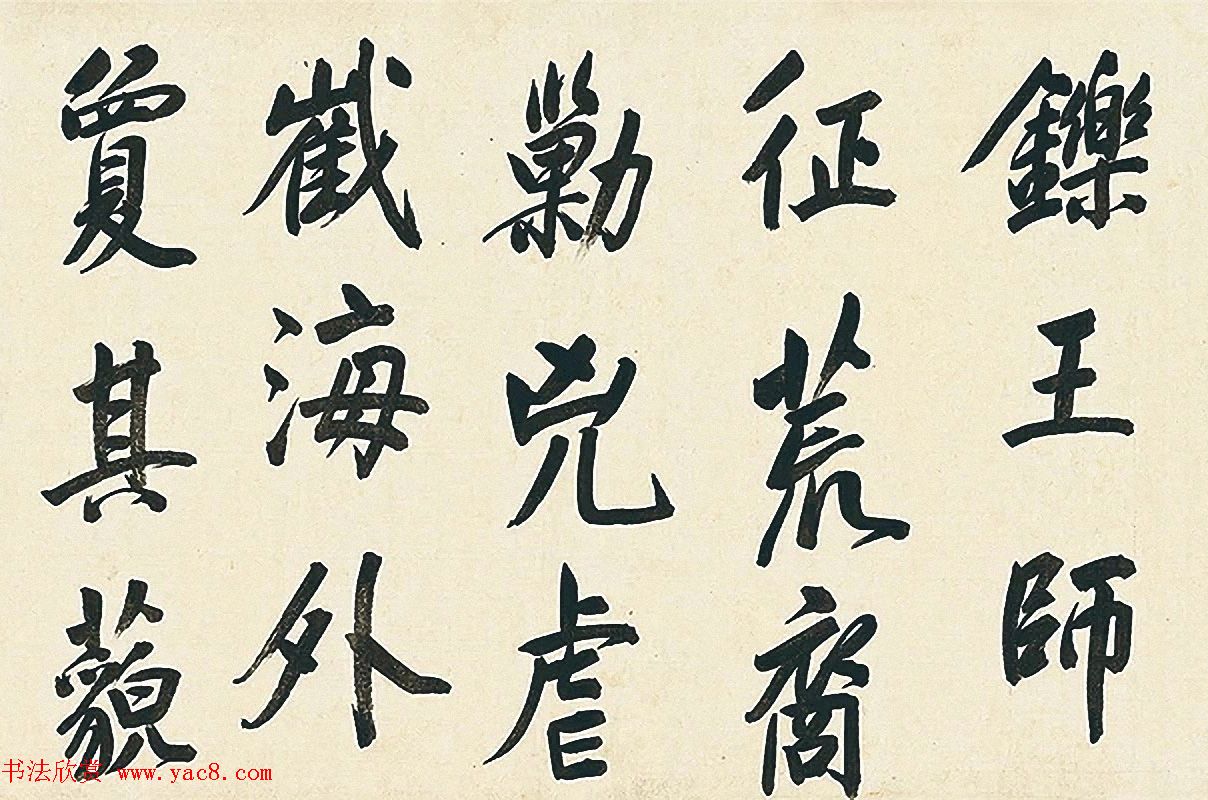 鑠王師
征荒裔
勦兇虐
截海外
夐其藐
书法欣赏 www.yac8.com